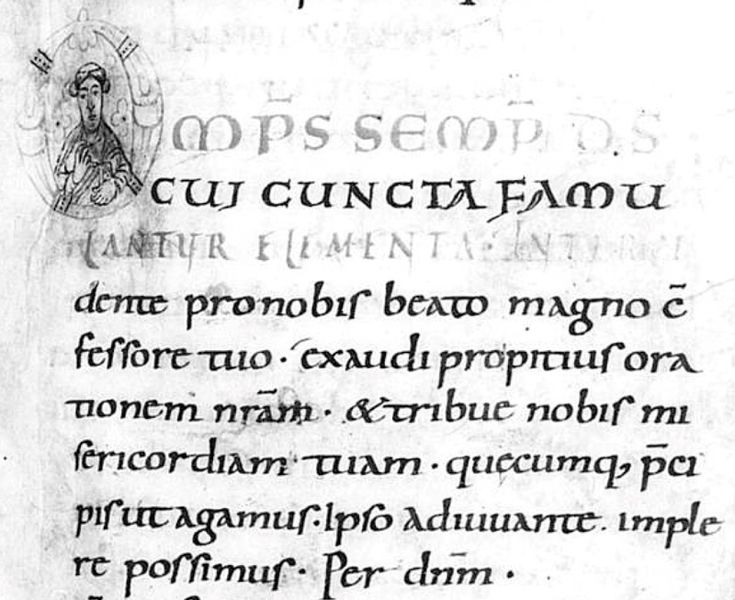 OMP̄S SEMP̄ D̄S
CUI CUNCTA FAMU
LANTUR ELEMENTA· INTERCE
dente pro nobis beato magno c̄
fessore tuo · exaudi propitius ora
tionem nr̄am · & tribue nobis mi
sericordiam tuam · quecumq, p̄ci
pis ut agamus · Ipso adiuuante. imple
re possimus · Per dnm̄ ·